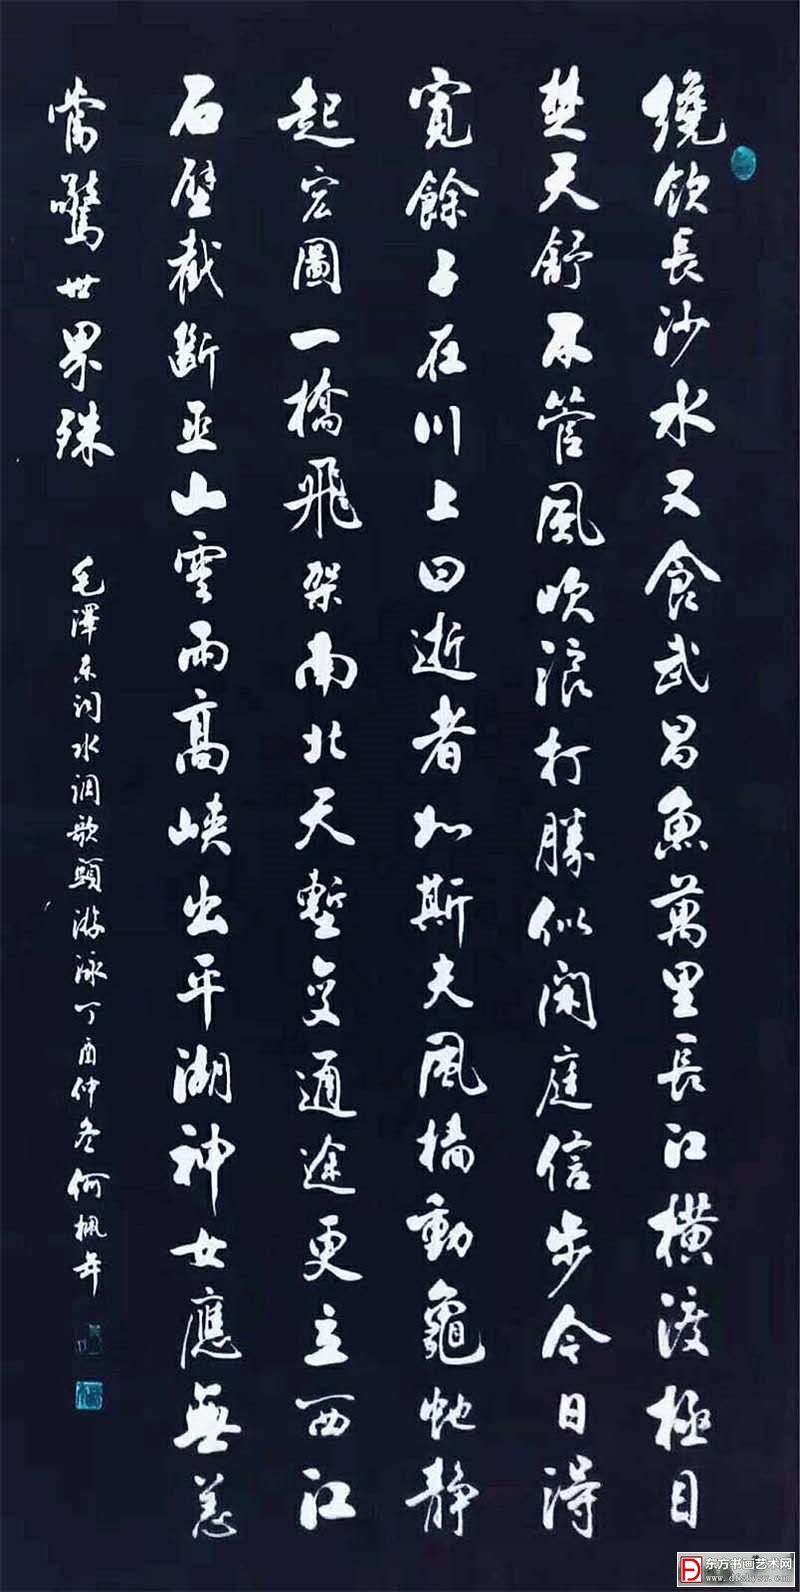 繞飲長沙水又食武昌魚萬里長江橫渡極目
楚天舒不管風吹浪打勝似閑庭信步今日得
寬餘子在川上曰逝者如斯夫風檣動龜蛇静
起宏圖一橋飛架南北天塹變通途更立西江
石壁截斷巫山雲雨高峽出平湖神女應無恙
當驚世界殊
毛澤东詞水調歌頭游泳丁酉仲冬何
东方书画艺术网